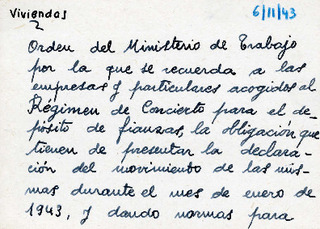 Viviendas
6/11/43
Orden del Ministerio de Trabajo
por la que se recuerda a las
empresas y particulares acogidos al
Régimen de Concierto para el de-
pósito de fianzas, la obligación que
tienen de presentar la declara-
ción del movimiento de las mis-
mas durante el mes de enero de
1943, y dando normas para